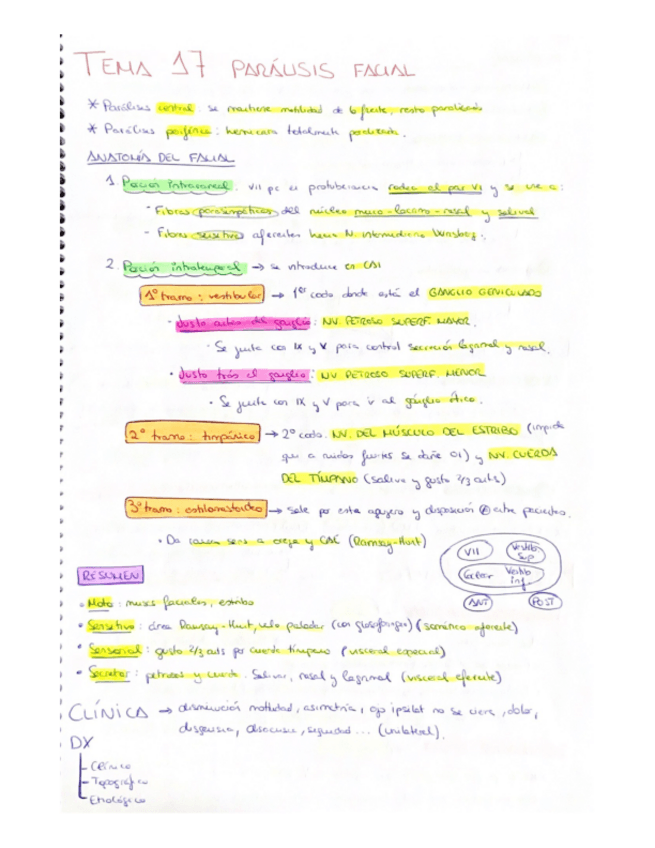 TEMA 17 PARÁLISIS FACIAL
* Parálisis central: se mantiene motilidad de la frente, resto paralizado
* Parálisis periférica: hemicara totalmente paralizada.
ANATOMÍA DEL FACIAL
1. Porción intracraneal: VII pc en protuberancia rodea el par VI y se une a:
- Fibras parasimpáticas del núcleo muco-lacrimo-nasal y salival
- Fibras sensitivas aferentes hacen N. intermediario Wrisberg.
2. Porción intratemporal → se introduce en CAI
1º tramo: vestibular → 1er codo donde está el GANGLIO GENICULADO
• Justo antes del ganglio: NV. PETROSO SUPERF. MAYOR.
• Se junta con IX y V para control secreción lagrimal y nasal.
• Justo tras el ganglio: NV PETROSO SUPERF. MENOR
• Se junta con IX y V para ir al ganglio ótico.
2º tramo: timpánico → 2º codo. NV. DEL MÚSCULO DEL ESTRIBO (impide
que a ruidos fuertes se dañe OI) y NV. CUERDA
DEL TÍMPANO (saliva y gusto 2/3 ants)
3º tramo: estilomastoideo → Sale por este agujero y disposición entre pacientes.
• Da sens a oreja y CAE (Ramsay-Hunt)
VII Vestib Sup
Coclear Vestib inf
ANT POST
RESUMEN
• Moto: muscs faciales, estribo
• Sensitivo: área Ramsay-Hunt, velo paladar (con glosofaríngeo) (somático aferente)
• Sensorial: gusto 2/3 ants por cuerda tímpano (visceral especial)
• Secretor: petrosos y cuerda. Saliva, nasal y lagrimal (visceral eferente)
CLÍNICA → disminución motilidad, asimetría, ojo ipsilat no se cierra, dolor,
disgeusia, disacusia, sequedad... (unilateral).
DX
- Clínico
- Topográfico
- Etiológico